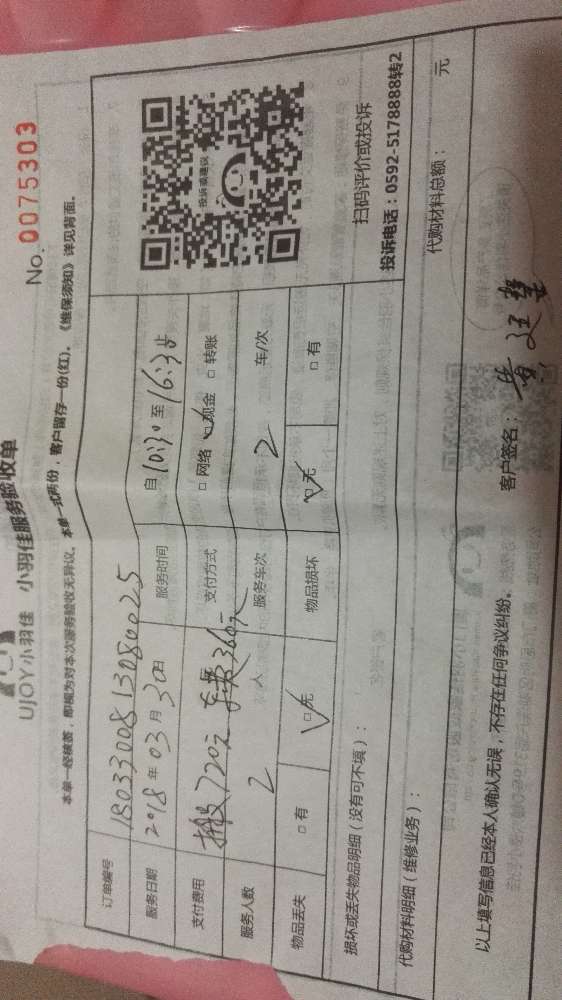 UJOY小羽佳 小羽佳服务验收单
No. 0075303
本单一经核签，即视为对本次服务验收无异议。本单一式两份，客户留存一份(红)。《维保须知》详见背面。
订单编号 18033008130800225
服务日期 2018 年 03 月 30 日 服务时间 自 10:30 至 16:30
支付费用 720元 车费360元 支付方式 □ 网络 □ 现金 □ 转账
服务人数 2 人 服务车次 2 车/次
物品丢失 □ 有 □ 无 物品损坏 □ 无 □ 有
投诉或建议
扫码评价或投诉
投诉电话：0592-5178888转2
损坏或丢失物品明细（没有可不填）：
代购材料明细（维修业务）： 代购材料总额： 元
以上填写信息已经本人确认无误，不存在任何争议纠纷。 客户签名：